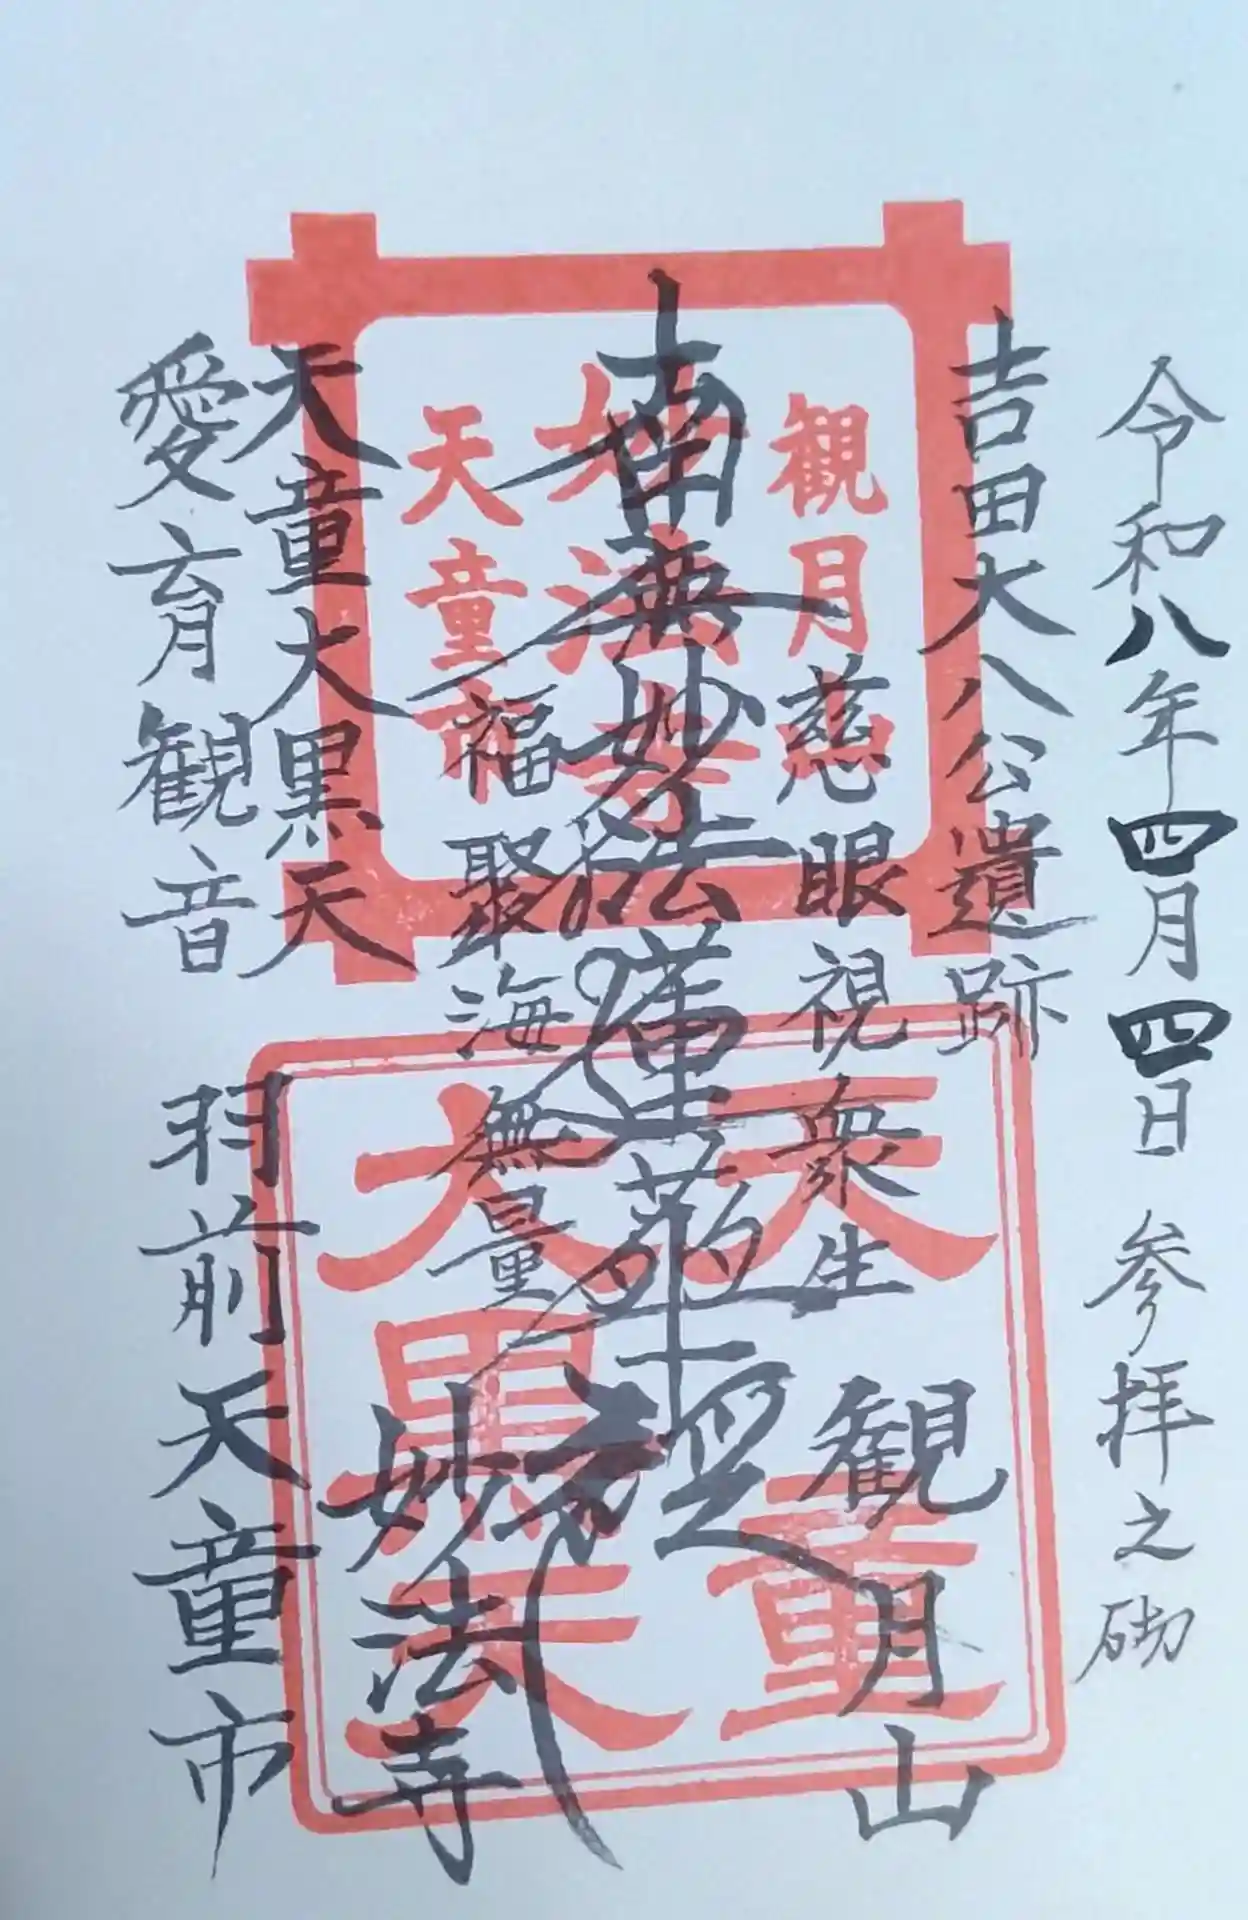 令和八年四月四日 参拝之砌
吉田大八公遺跡
慈眼視衆生
観月山
南無妙法蓮華経
福聚海無量
妙法寺
天童大黒天
愛育観音
羽前天童市
観月
妙法寺
天童市
天童
大黒天